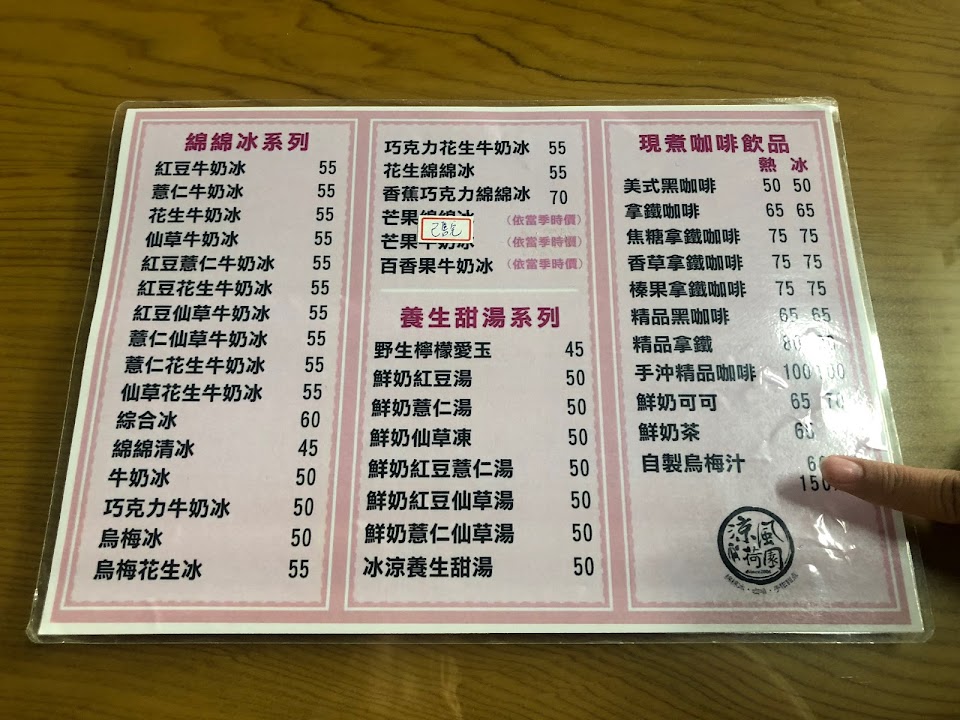 綿綿冰系列
紅豆牛奶冰 55
薏仁牛奶冰 55
花生牛奶冰 55
仙草牛奶冰 55
紅豆薏仁牛奶冰 55
紅豆花生牛奶冰 55
紅豆仙草牛奶冰 55
薏仁仙草牛奶冰 55
薏仁花生牛奶冰 55
仙草花生牛奶冰 55
綜合冰 60
綿綿清冰 45
牛奶冰 50
巧克力牛奶冰 50
烏梅冰 50
烏梅花生冰 55
巧克力花生牛奶冰 55
花生綿綿冰 55
香蕉巧克力綿綿冰 70
芒果綿綿冰 (依當季時價)
已售完
芒果牛奶冰 (依當季時價)
百香果牛奶冰 (依當季時價)
養生甜湯系列
野生檸檬愛玉 45
鮮奶紅豆湯 50
鮮奶薏仁湯 50
鮮奶仙草凍 50
鮮奶紅豆薏仁湯 50
鮮奶紅豆仙草湯 50
鮮奶薏仁仙草湯 50
冰涼養生甜湯 50
現煮咖啡飲品
熱 冰
美式黑咖啡 50 50
拿鐵咖啡 65 65
焦糖拿鐵咖啡 75 75
香草拿鐵咖啡 75 75
榛果拿鐵咖啡 75 75
精品黑咖啡 65 65
精品拿鐵
手沖精品咖啡 100 100
鮮奶可可 65
鮮奶茶
自製烏梅汁
涼風
荷園